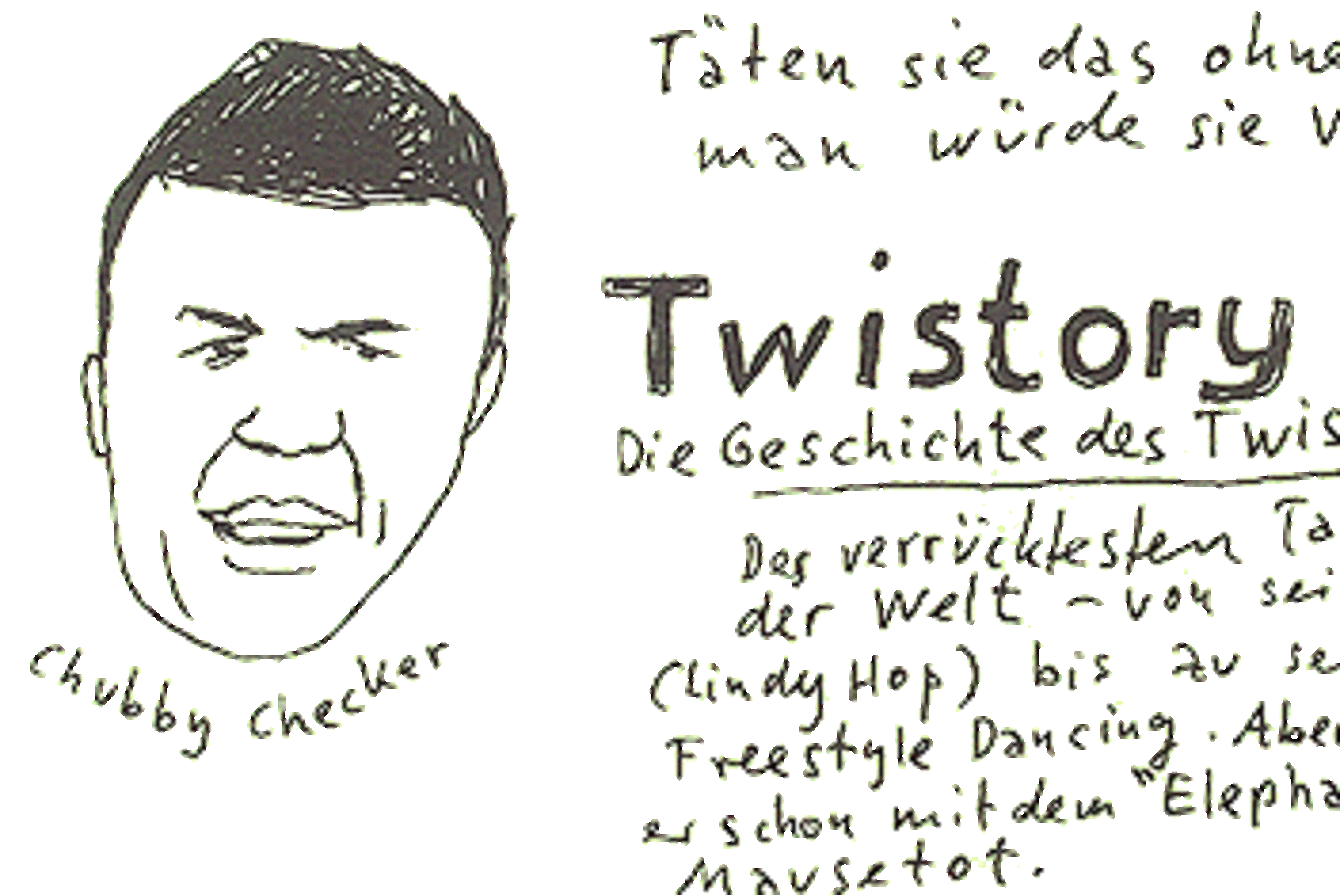 Täten sie das ohne
man würde sie v
Twistory
Die Geschichte des Twis
Des verrücktesten Ta
der Welt - von sei
(Lindy Hop) bis zu se
Freestyle Dancing. Aber
er schon mit dem "Elepha
Mausetot.
Chubby Checker